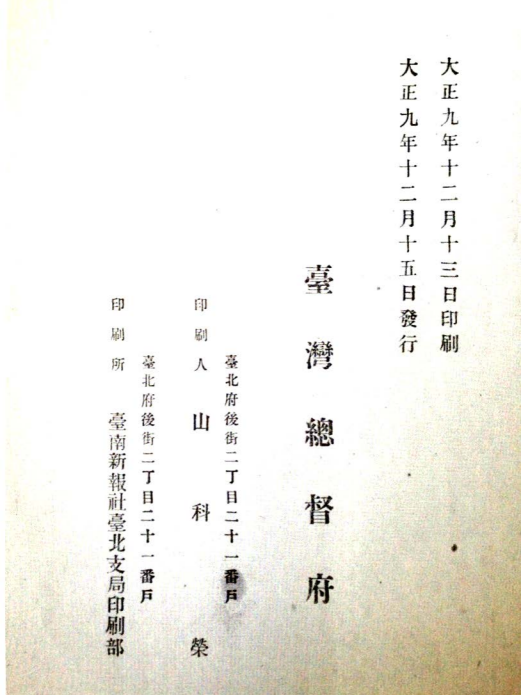 大正九年十二月十三日印刷
大正九年十二月十五日發行
臺灣總督府
臺北府後街二丁目二十一番戶
印刷人 山科榮
臺北府後街二丁目二十一番戶
印刷所 臺南新報社臺北支局印刷部